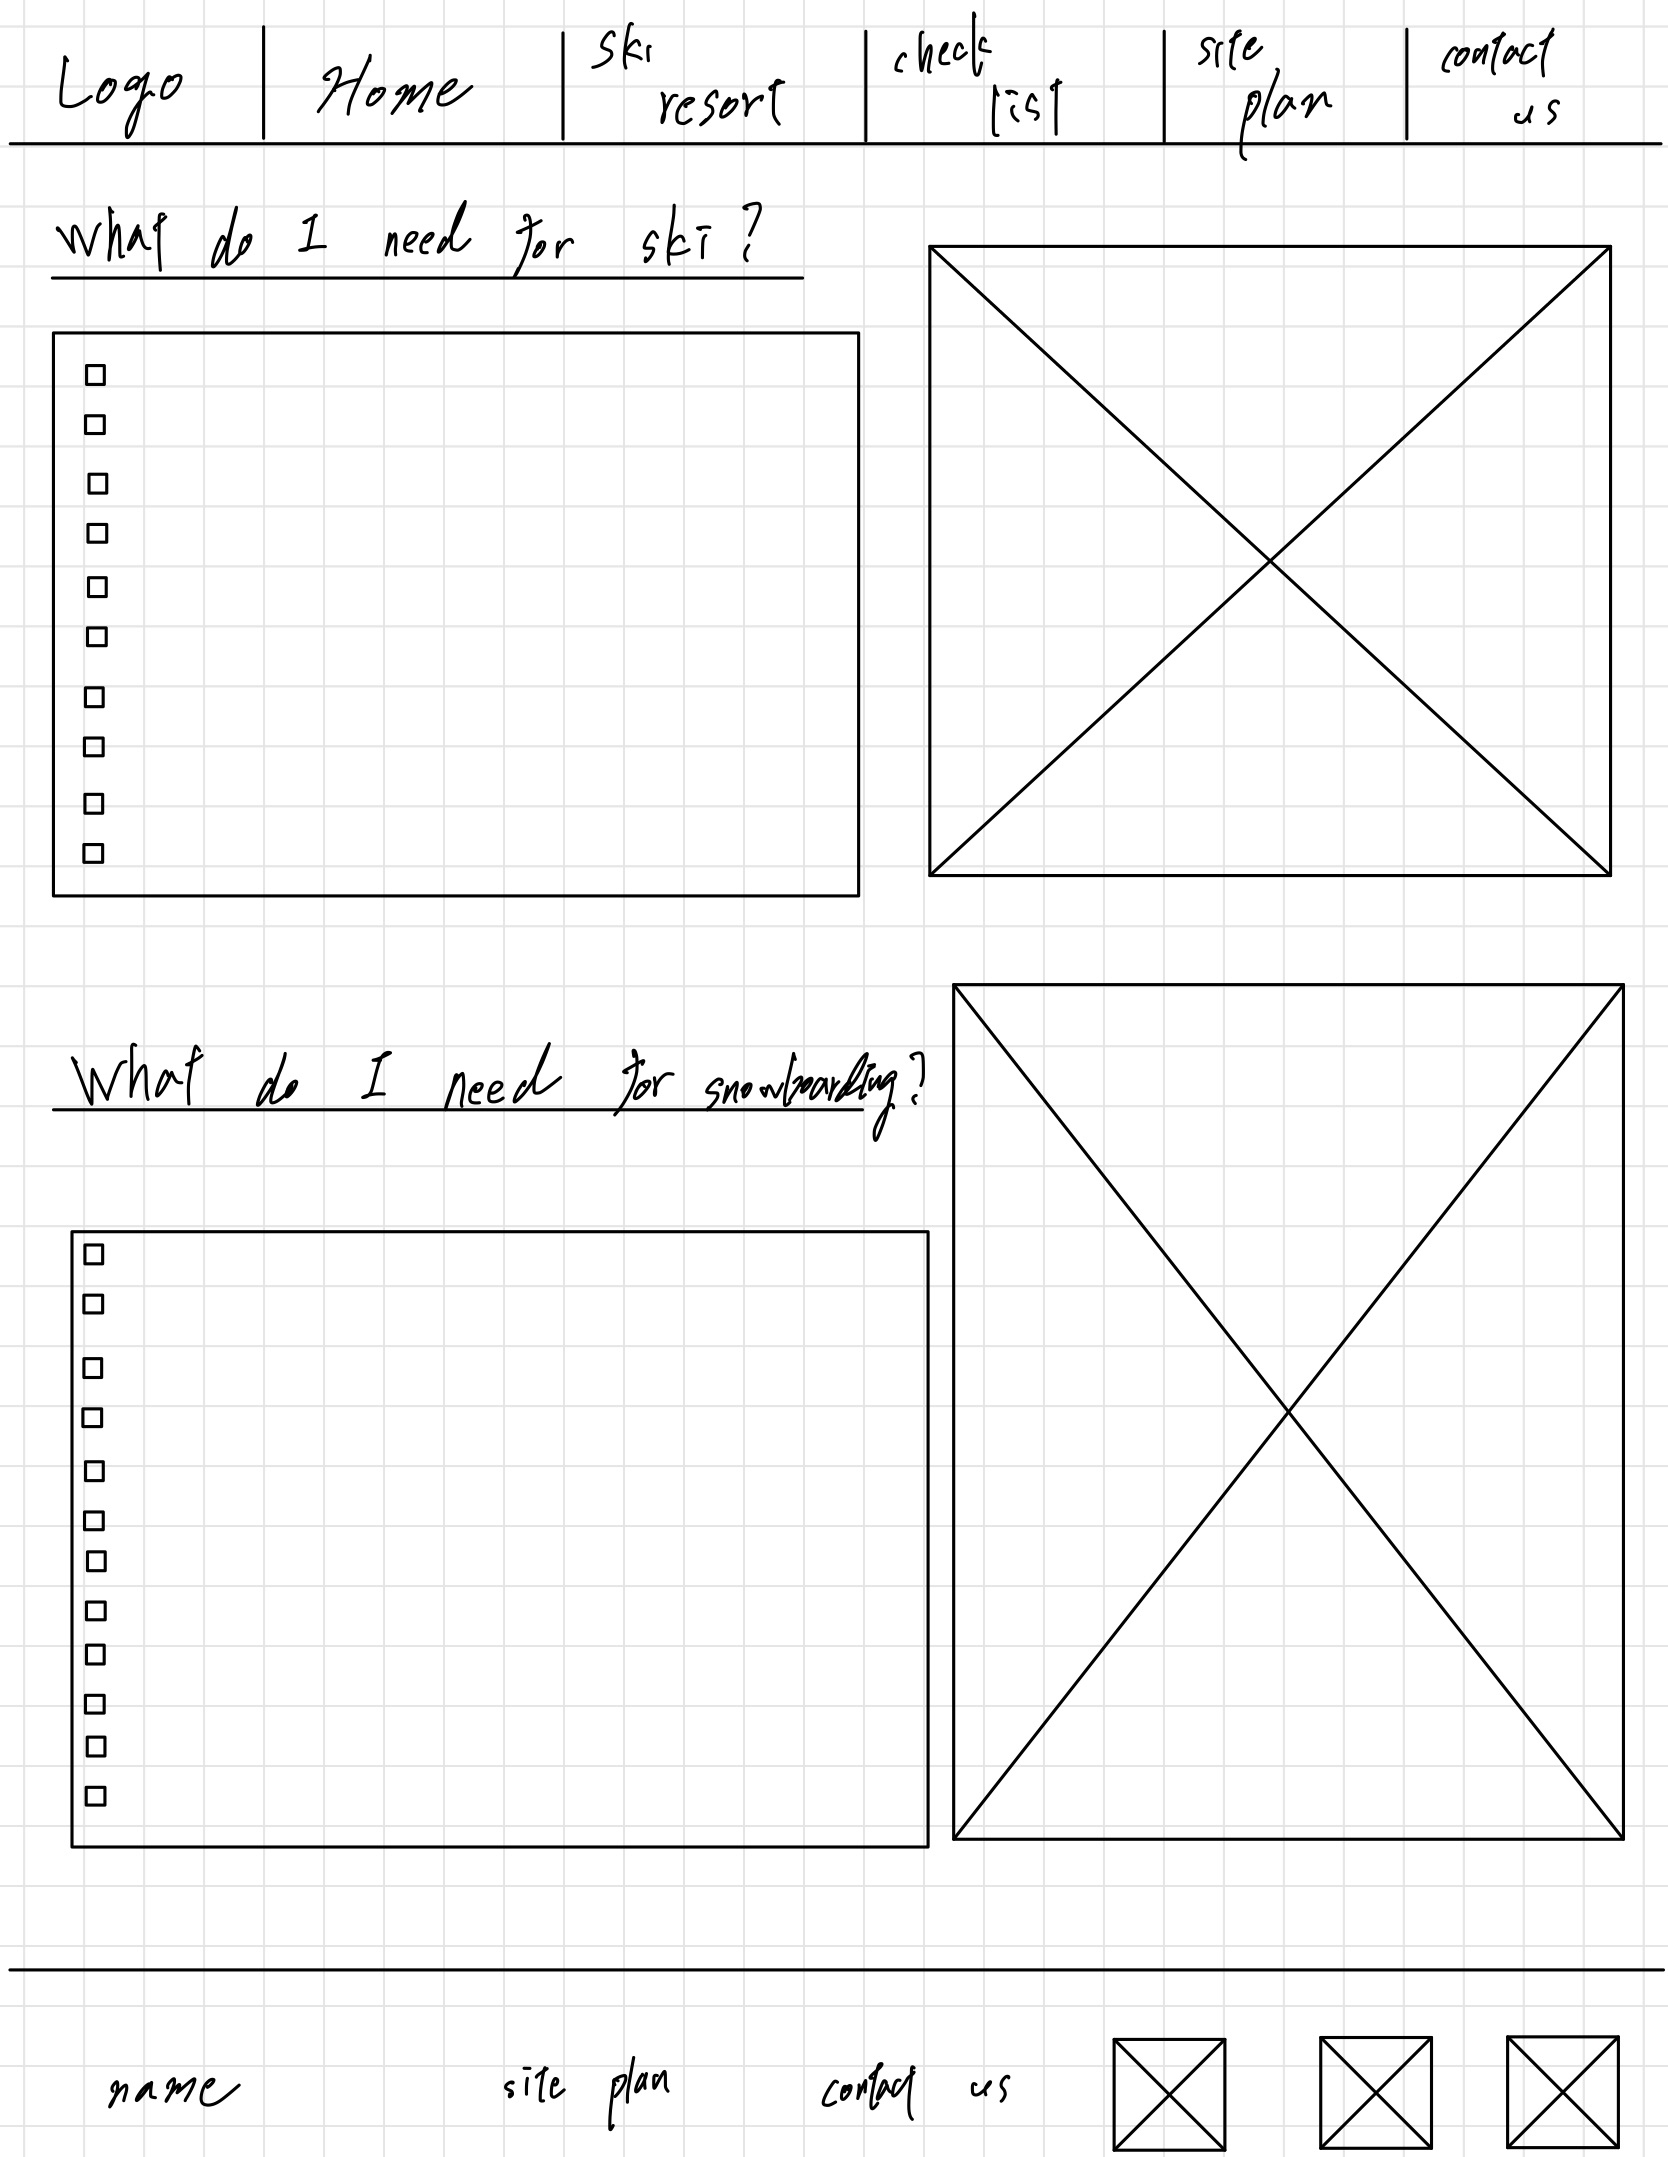 Logo
Home
ski
resort
check
list
site
plan
contact
us
What do I need for ski?
What do I need for snowboarding?
name
site plan
contact us